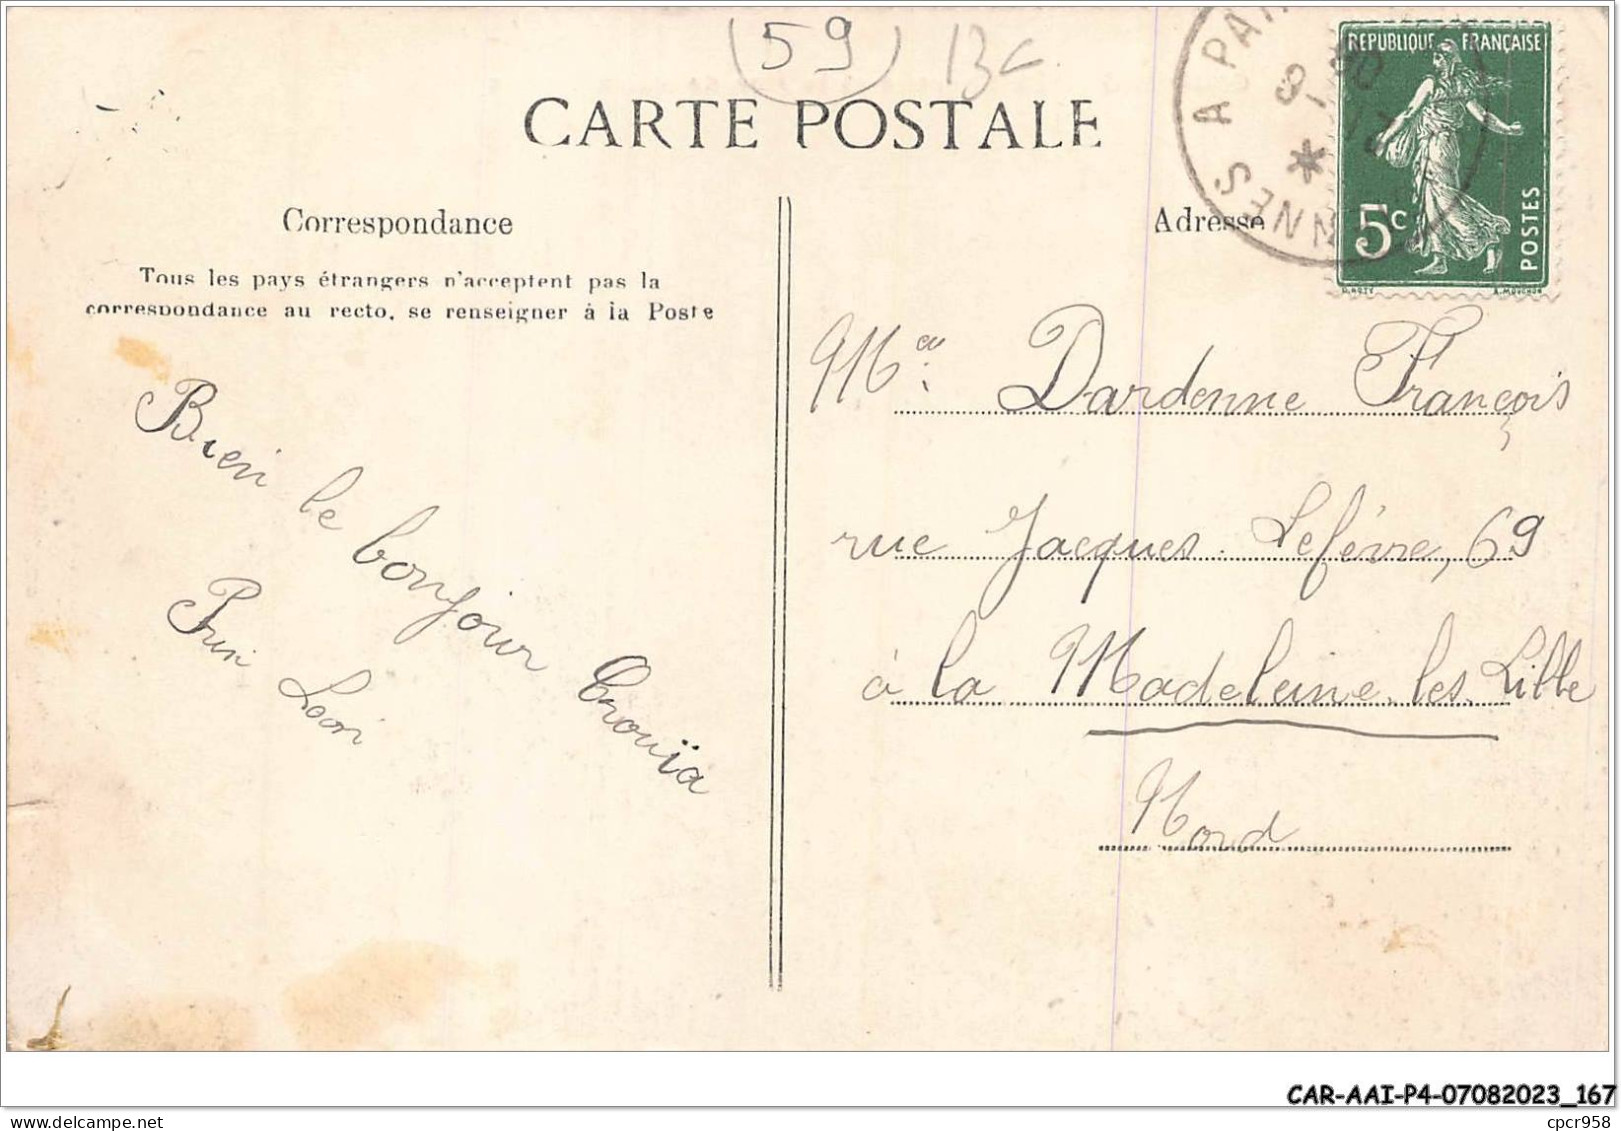 59
CARTE POSTALE
REPUBLIQUE FRANÇAISE
5c
POSTES
NNES A PAR
Correspondance
Adresse
Tous les pays étrangers n'acceptent pas la
correspondance au recto, se renseigner à la Poste
Bien le bonjour
Léon
Dardenne François
rue Jacques Lefévre, 69
à la Madeleine-les-Lille
Nord
CAR-AAI-P4-07082023_167
cpcr958